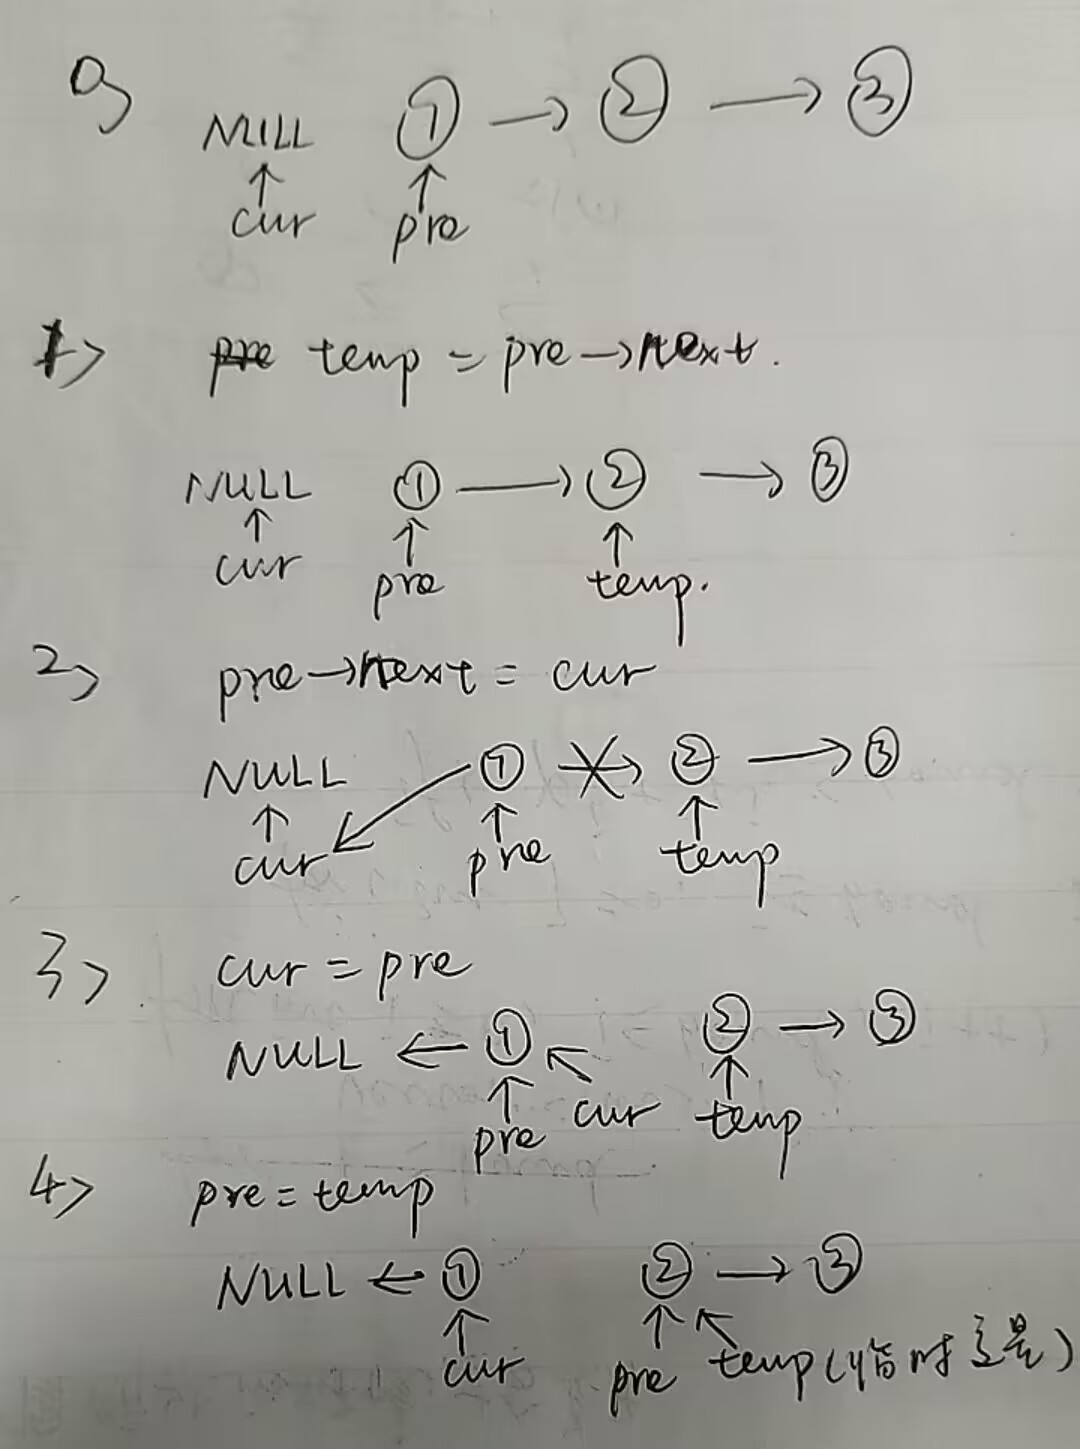 0>
NULL ① → ② → ③
↑ ↑
cur pre
1> temp = pre→next.
NULL ① → ② → ③
↑ ↑ ↑
cur pre temp.
2> pre→next = cur
NULL ① → ② → ③
↑ ↑ ↑
cur pre temp
3> cur = pre
NULL ← ① ② → ③
↑ ↑
pre cur temp
4> pre = temp
NULL ← ① ② → ③
↑ ↑
cur pre temp (临时变量)